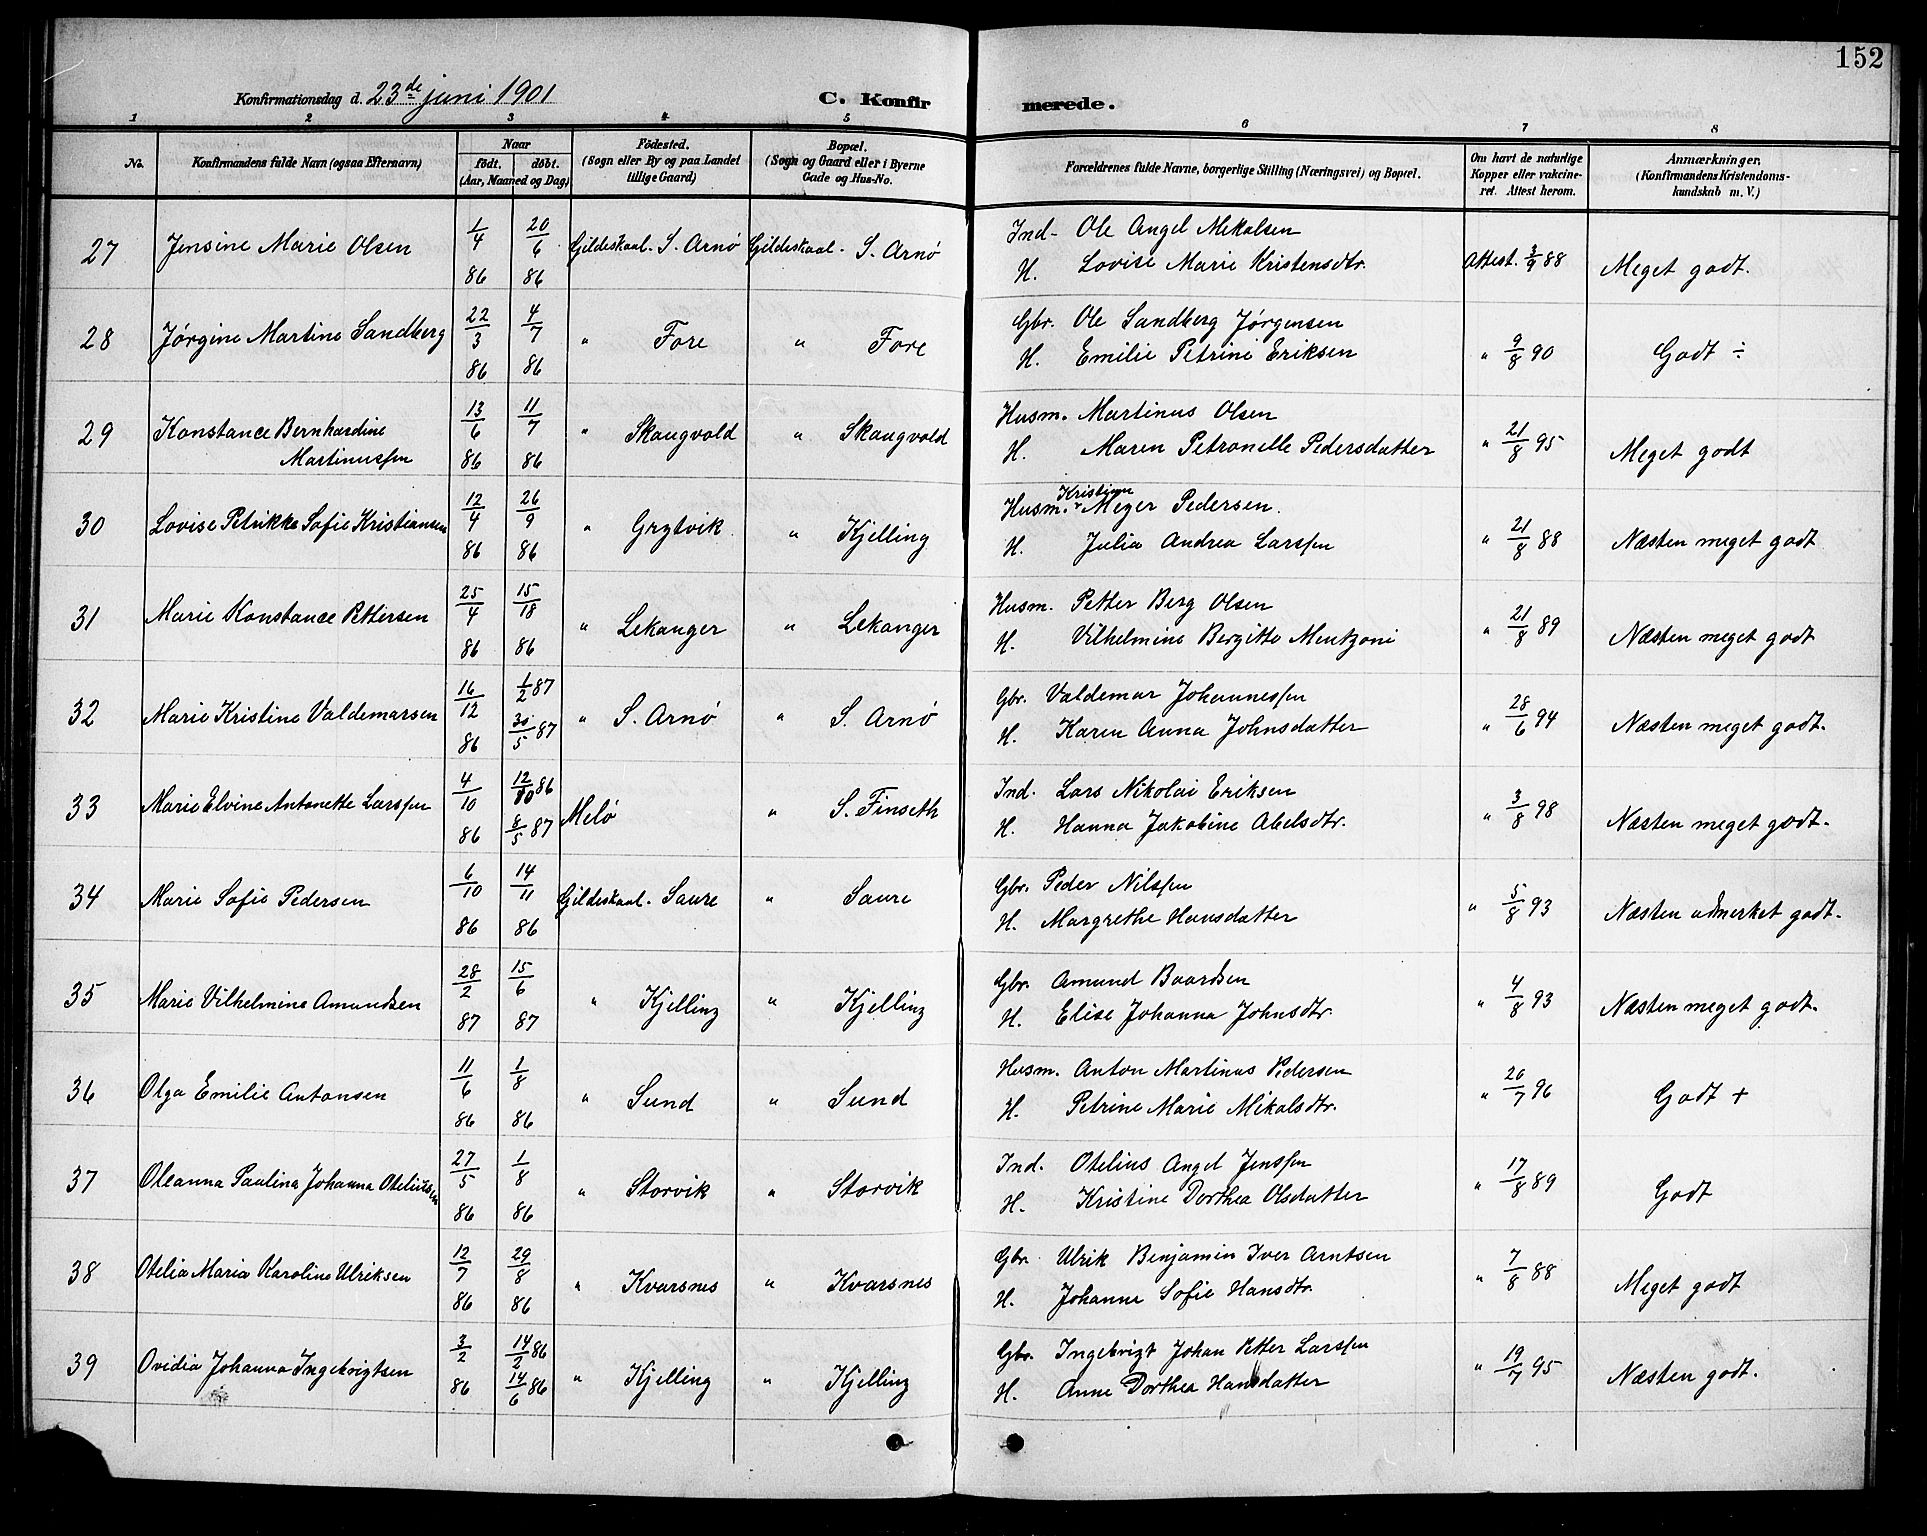 152
Konfirmationsdag d. 23de juni 1901
C. Konfirmerede.
1 2 3 4 5 6 7 8
No. Konfirmandens fulde Navn (ogsaa Efternavn) Naar født. døbt. (Aar, Maaned og Dag) Födested. (Sogn eller By og paa Landet tillige Gaard) Bopæl. (Sogn og Gaard eller i Byerne Gade og Hus-No. Forældrenes fulde Navne, borgerlige Stilling (Næringsvei) og Bopæl. Om havt de naturlige Kopper eller vakcineret. Attest herom. Anmærkninger. (Konfirmandens Kristendomskundskab m. V.)
27 Jensine Marie Olsen 1/4 86 20/6 86 Gildeskaal. S. Arnø Gildeskaal. S. Arnø Ind. Ole Angel Mikalsen
H. Lovise Marie Kristensdtr. Attest. 3/9 88 Meget godt.
28 Jørgine Martine Sandberg 22/3 86 4/7 86 " Fore " Fore Gbr. Ole Sandberg Jørgensen
H. Emilie Petrine Eriksen " 9/8 90 Godt ÷
29 Konstance Bernhardine
Martinussen 13/6 86 11/7 86 " Skaugvold " Skaugvold Husm. Martinus Olsen
H. Maren Petronelle Pedersdatter " 21/8 95 Meget godt
30 Lovise Petrikke Sofie Kristiansen 12/4 86 26/9 86 " Grytvik " Kjelling Husm. Kristian Meyer Pedersen.
H. Julia Andrea Larssen " 21/8 88 Næsten meget godt
31 Marie Konstance Pettersen 25/4 86 15/18 86 " Lekanger " Lekanger Husm. Petter Berg Olsen
H. Vilhelmine Bergitte Mentzoni " 21/8 89 Næsten meget godt
32 Marie Kristine Valdemarsen 16/12 86 1/2 87 30/5 87 " S. Arnø " S. Arnø Gbr. Valdemar Johannessen
H. Karen Anna Johnsdatter " 28/6 94 Næsten meget godt.
33 Marie Elvine Antonette Larssen 4/10 86 12/10 86 8/5 87 Melø " S. Finseth Ind. Lars Nikolai Eriksen
H. Hanna Jakobine Abelsdtr. " 3/8 98 Næsten meget godt.
34 Marie Sofie Pedersen 6/10 86 14/11 86 Gildeskaal. Saure " Saure Gbr. Peder Nilssen
H. Margrethe Hansdatter " 5/8 93 Næsten udmerket godt.
35 Marie Vilhelmine Amundsen 28/2 87 15/6 87 " Kjelling " Kjelling Gbr. Amund Baardsen
H. Elise Johanna Johnsdtr. " 4/8 93 Næsten meget godt.
36 Olga Emilie Antonsen 11/6 86 1/8 86 " Sund " Sund Husm. Anton Martinus Pedersen
H. Petrine Marie Mikalsdtr. " 26/7 96 Godt +
37 Oleanna Paulina Johanna Oteliussen 27/5 86 1/8 86 " Storvik " Storvik Ind. Otelius Angel Jenssen
H. Kristine Dorthea Olsdatter " 17/8 89 Godt
38 Otelia Maria Karoline Ulriksen 12/7 86 29/8 86 " Kvarsnes " Kvarsnes Gbr. Ulrik Benjamin Iver Arntsen
H. Johanne Sofie Hansdtr. " 7/8 88 Meget godt
39 Ovidia Johanna Ingebrigtsen 3/2 86 14/2 86 14/6 86 " Kjelling " Kjelling Gbr. Ingebrigt Johan Petter Larssen
H. Anne Dorthea Hansdatter " 19/7 95 Næsten godt.